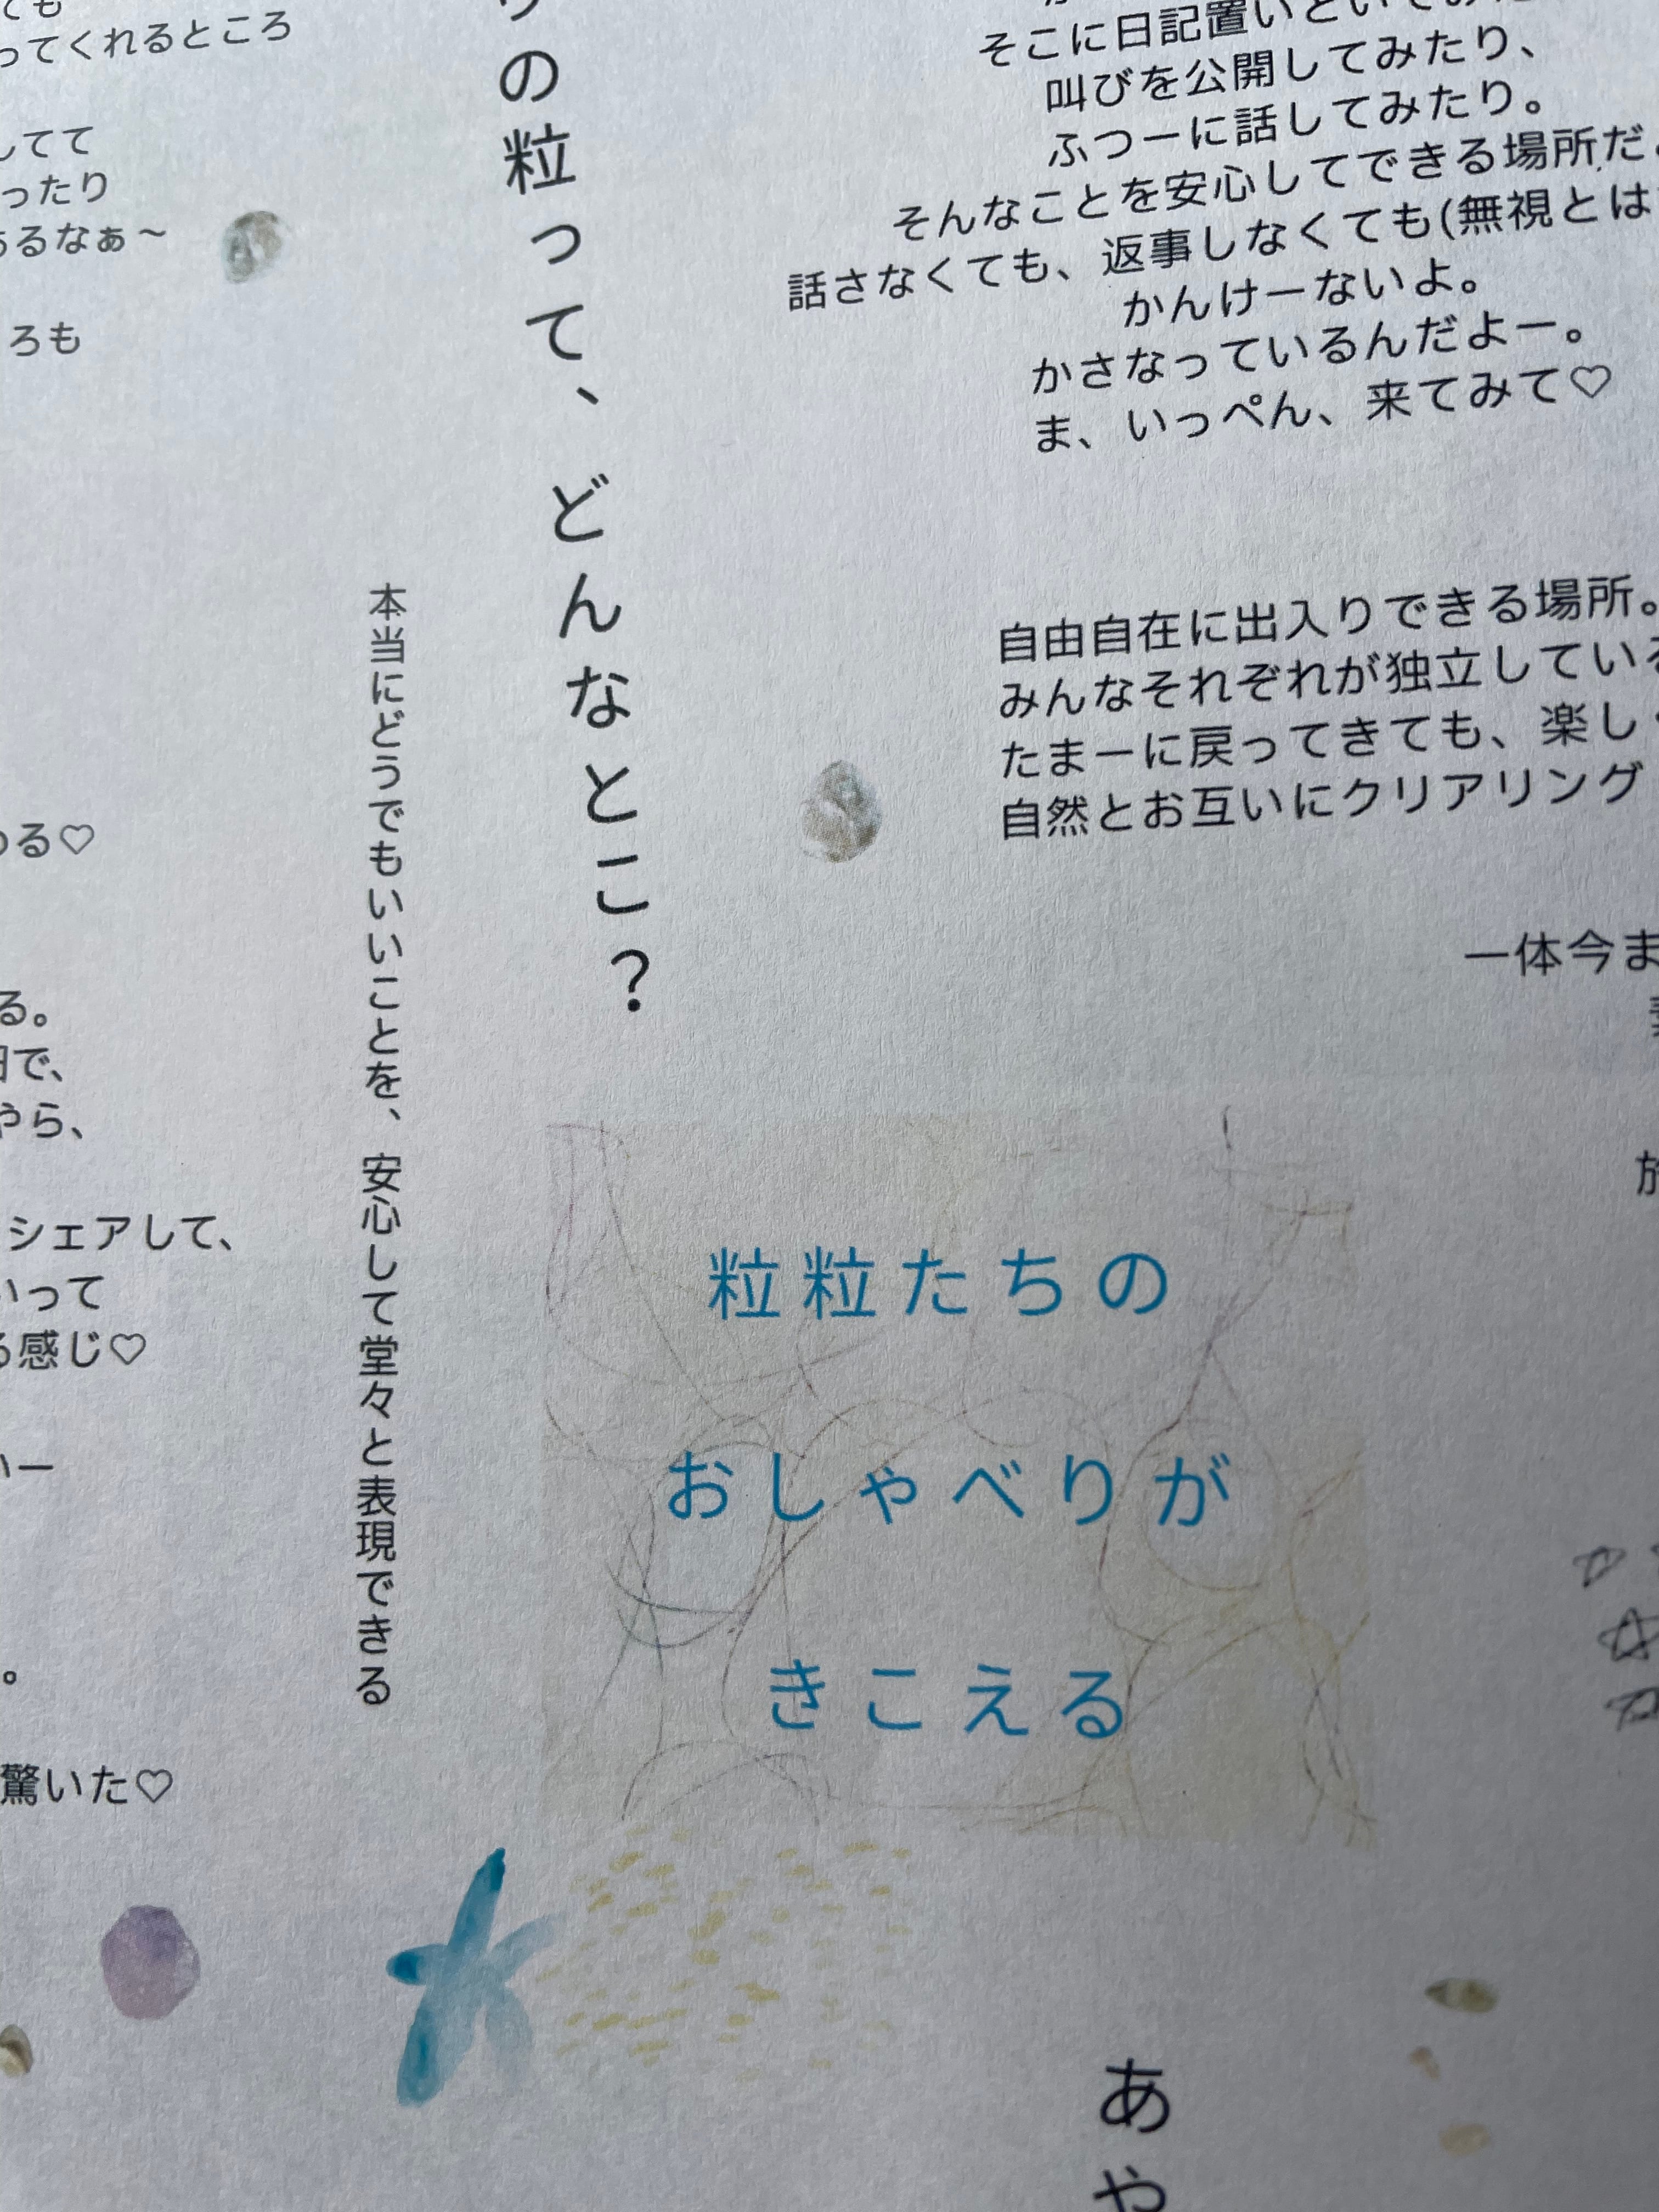 ても
ってくれるところ
してて
ったり
あるなぁ〜
ろも
る♡
る。
で、
やら、
シェアして、
いって
る感じ♡
いー
。
驚いた♡
の粒って、どんなとこ？
本当にどうでもいいことを、安心して堂々と表現できる
そこに日記置いといてみた
叫びを公開してみたり、
ふつーに話してみたり。
そんなことを安心してできる場所だ
話さなくても、返事しなくても(無視とは
かんけーないよ。
かさなっているんだよー。
ま、いっぺん、来てみて♡
自由自在に出入りできる場所。
みんなそれぞれが独立している
たまーに戻ってきても、楽し
自然とお互いにクリアリング
一体今ま
粒粒たちの
おしゃべりが
きこえる
あや